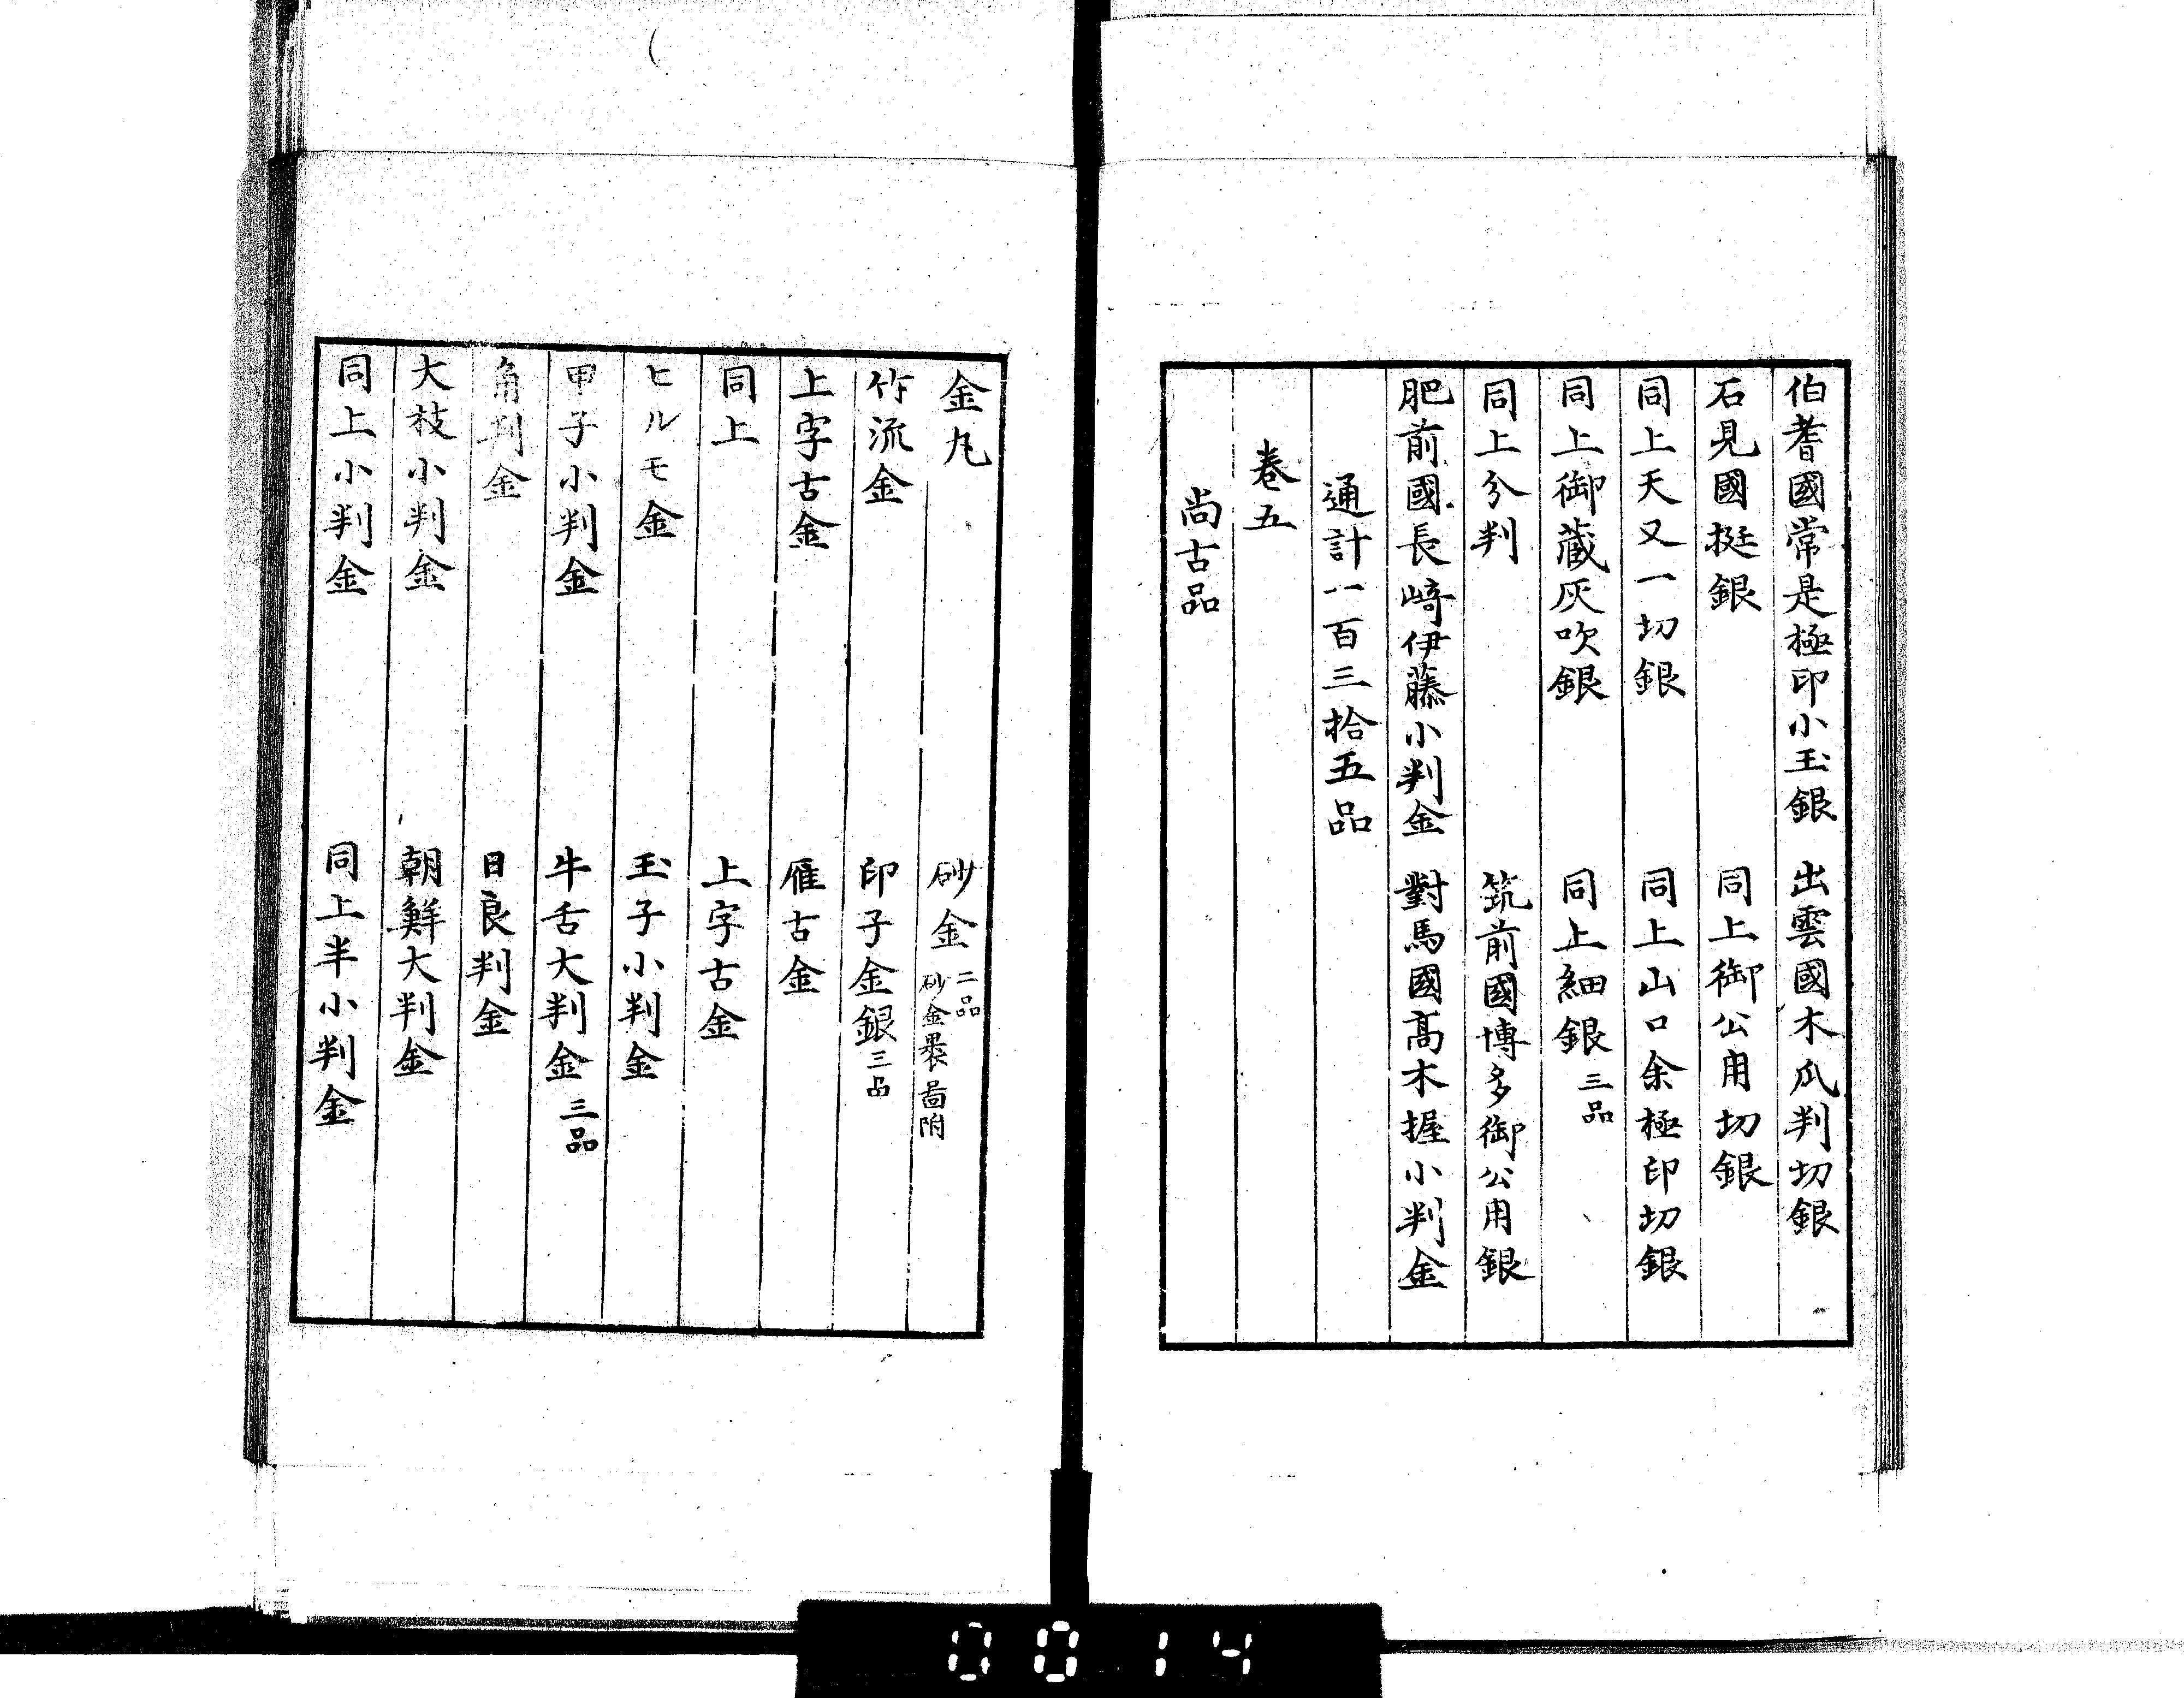 伯耆國常是極印小玉銀　出雲國木瓜判切銀
石見國挺銀　同上御公用切銀
同上天又一切銀　同上山口余極印切銀
同上御藏灰吹銀　同上細銀 三品
同上分判　筑前國博多御公用銀
肥前國長崎伊藤小判金　對馬國髙木握小判金
通計一百三拾五品
卷五
尚古品
金丸　砂金 二品
砂金 啚附
竹流金　印子金銀 三品
上字古金　雁古金
同上　上字古金
ヒルモ金　玉子小判金
甲子小判金　牛舌大判金 三品
角判金　日良判金
大枝小判金　朝鮮大判金
同上小判金　同上半小判金
0014